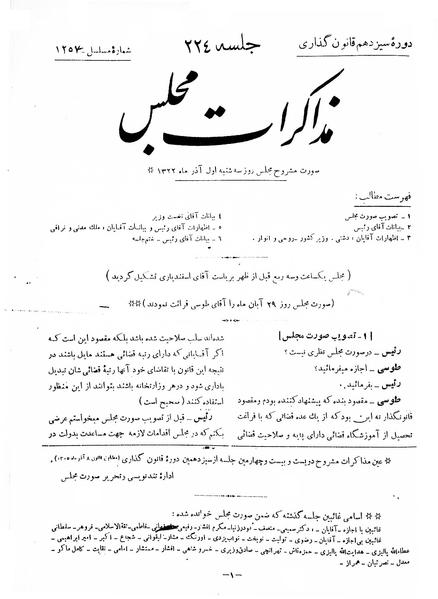 دورهٔ سیزدهم قانون گذاری
جلسه ۲۲۴
شمارهٔ مسلسل - ۱۲۵۷
مذاکرات مجلس
صورت مشروح مجلس روز سه شنبه اول آذر ماه ۱۳۲۲ ※
فهرست مطالب:
۱ - تصویب صورت مجلس
۲ - بیانات آقای رئیس
۳ - اظهارات آقایان: دشتی . وزیر کشور - روحی و انوار .
۴ بیانات آقای نخست وزیر
۵ - اظهارات آقای رئیس و بیانات آقایان: ملک مدنی و نراقی
۶ - بیانات آقای رئیس - ختم جلسه
(مجلس یکساعت وسه ربع قبل از ظهر بریاست آقای اسفندیاری تشکیل گردید)
(صورت مجلس روز ۲۹ آبان ماه را آقای طوسی قرائت نمودند) ※※
[۱ - تصویب صورت مجلس]
رئیس - درصورت مجلس نظری نیست؟
طوسی - اجازه میفرمائید؟
رئیس - بفرمائید.
طوسی - مقصود بنده که پیشنهاد کننده بودم ومقصود
قانونگذار نه این بود که از یك عده قضائی که با فراغت
تحصیل از آموزشگاه قضائی دارای پایه و صلاحیت قضائی
شده‌اند سلب صلاحیت شده باشد بلکه مقصود این است که
اگر آقایانی که دارای رتبه قضائی هستند مایل باشند در
نتیجه این قانون با تقاضای خود آنها رتبهٔ قضائی شان تبدیل
باداری شود و درهر وزارتخانه باشند بتوانند از این منظور
استفاده کنند (صحیح است)
رئیس - قبل از تصویب صورت مجلس میخواستم عرضی
بکنم که در مجلس اقدامات لازمه جهت مساعدت بدولت در
※ عین مذاکرات مشروح دویست و بیست وچهارمین جلسه ازسیزدهمین دورهٔ قانون گذاری (مطابق قانون ۸ آذر ماه ۱۳۰۵)
ادارهٔ تندنویسی وتحریر صورت مجلس
※※ اسامی غائبین جلسه گذشته که ضمن صورت مجلس خوانده شده:
غائبین با اجازه - آقایان - دکتر سمیعی - منصف - مکرم افشار - رفیعی - فاطمی - ثقةالاسلامی - فروهر - سلطانی
غائبین بی‌اجازه - آقایان - رضوی - تولیت - نوبخت - نواب یزدی - اورنگ - مشار - ایلوانی - شجاع - اکبر - امیر ابراهیمی
عطاءالله پالیزی - هدایت‌الله پالیزی - حمزه‌تاش - تهرانچی - صادق‌وزیری - خسرو شاهی - افشار - مستشار - امامی - نقابت - کامل ماکو -
معدل - نصرتیان - همراز -
-۱-